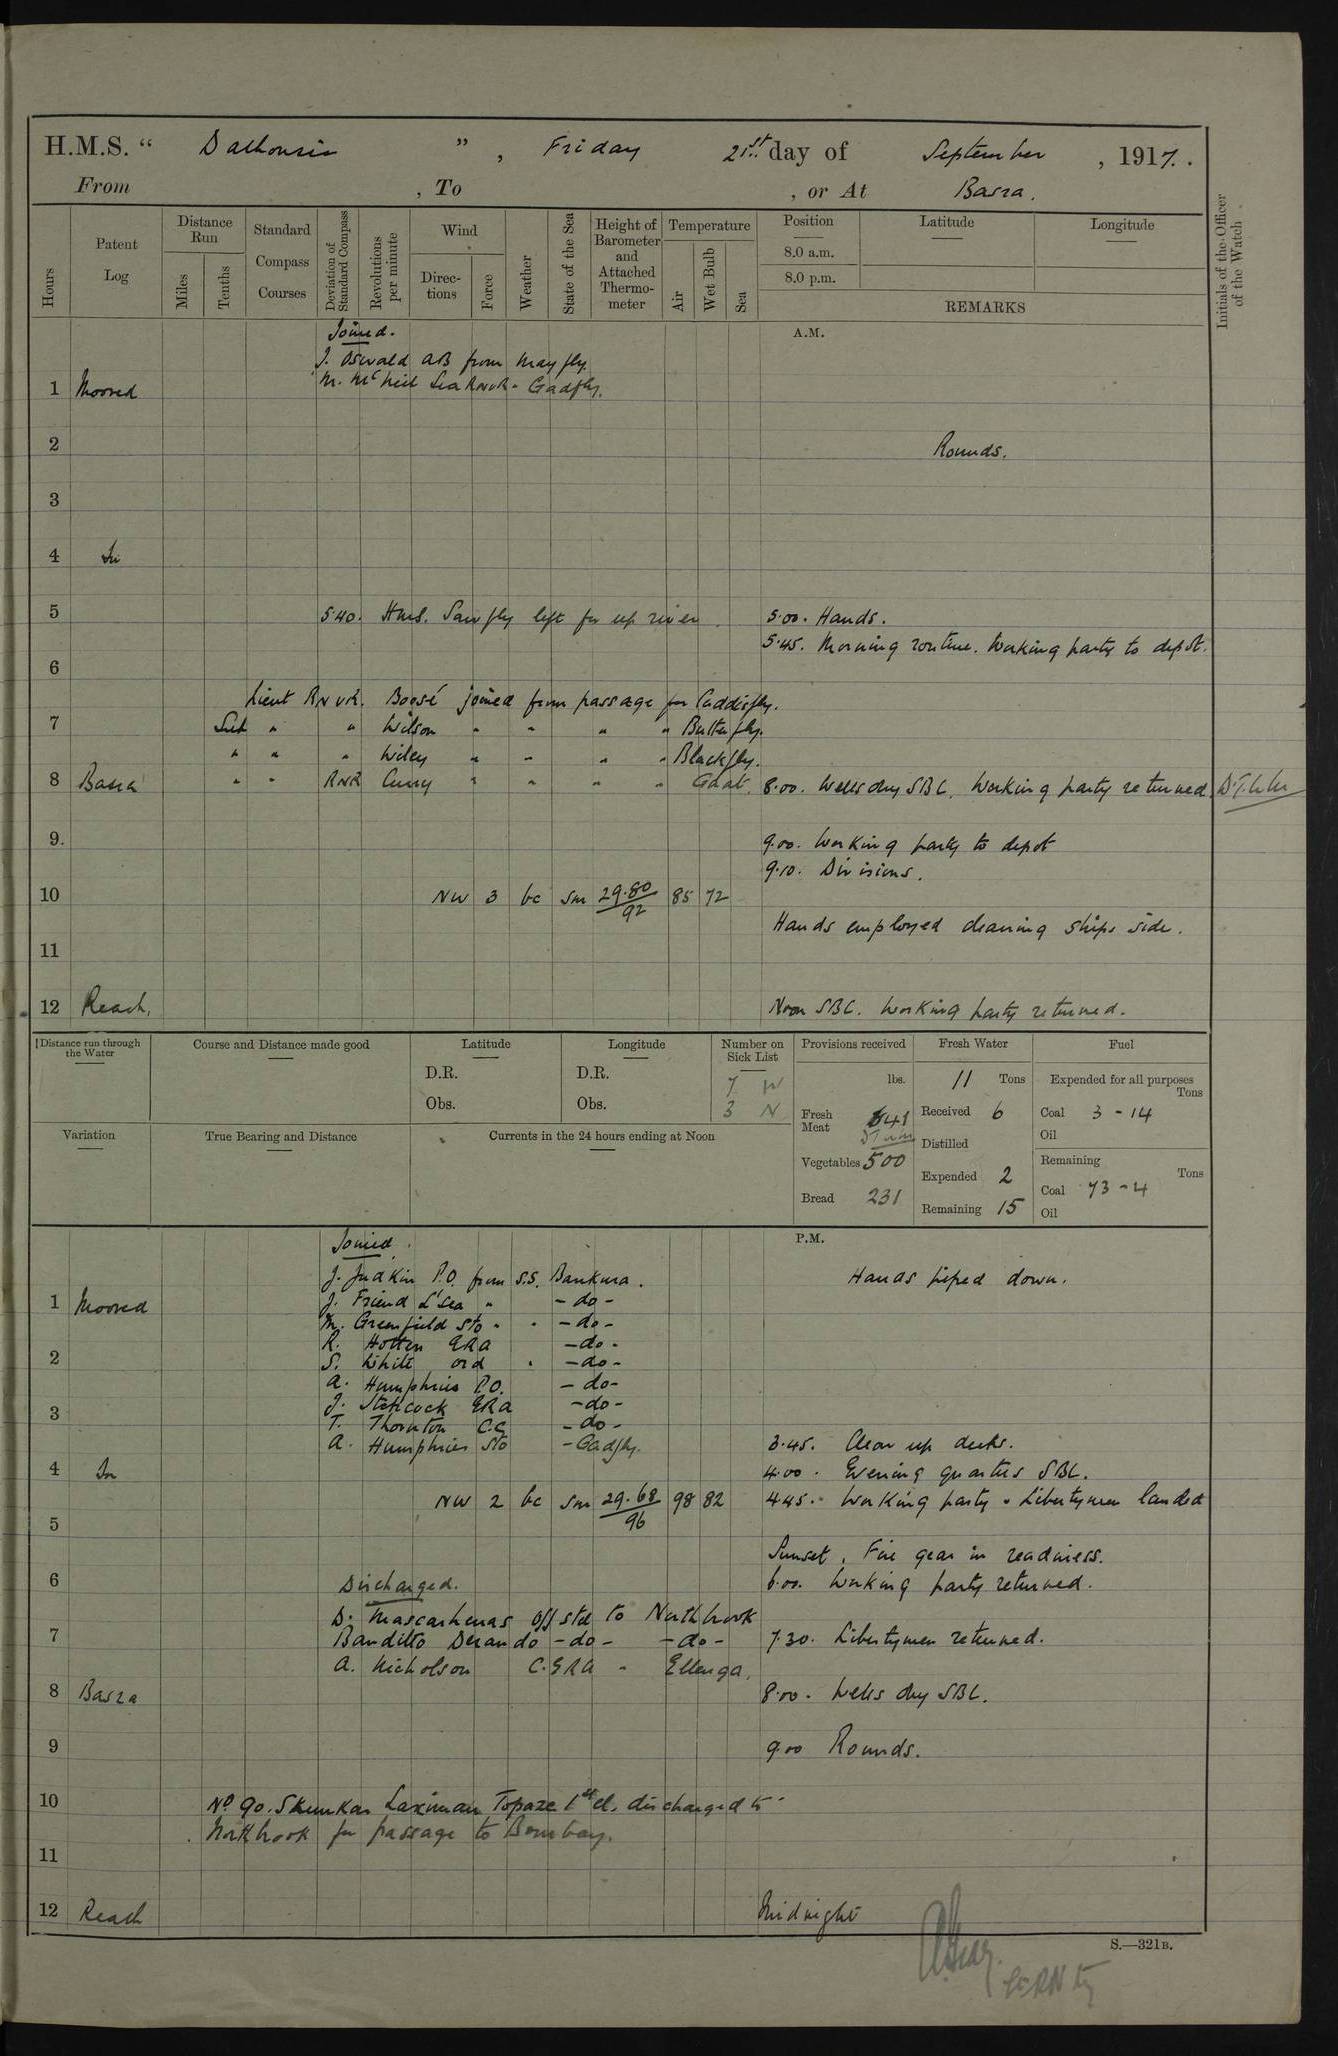 H.M.S. “ Dalhousie ” , Friday 21st day of September , 1917.
From , To , or At Basra.
Hours
Patent Log
Distance Run
Miles
Tenths
Standard Compass Courses
Deviation of Standard Compass
Revolutions per minute
Wind
Directions
Force
Weather
State of the Sea
Height of Barometer and Attached Thermometer
Temperature
Air
Wet Bulb
Sea
Position
Latitude
Longitude
8.0 a.m.
8.0 p.m.
REMARKS
Initials of the Officer of the Watch
A.M.
Joined.
J. Oswald AB from Mayfly.
1 Moored M. McNeil Sea RNVR " Gadfly.
2 Rounds.
3
4 In
5 5.40. HMS. Sawfly left for up river. 5.00. Hands.
5.45. Morning routine. Working party to depot.
6
Lieut RNVR. Boosé joined from passage for Caddisfly.
7 Sub " " Wilson " " " " Butterfly.
" " " Wiley " " " " Blackfly.
8 Basra " " RNR Curry " " " " Gnat. 8.00. Wells dry SBC. Working party returned.
9. 9.00. Working party to depot
9.10. Divisions.
10 NW 3 bc sm 29.80/92 85 72
Hands employed cleaning ships side.
11
12 Reach. Noon SBC. Working party returned.
Distance run through the Water
Course and Distance made good
Latitude
D.R.
Obs.
Longitude
D.R.
Obs.
Number on Sick List
7 W
3 N
Provisions received
lbs.
Fresh Meat 641
Vegetables 500
Bread 231
Fresh Water
11 Tons
Received 6
Distilled
Expended 2
Remaining 15
Fuel
Expended for all purposes
Tons
Coal 3-14
Oil
Remaining
Tons
Coal 73-4
Oil
Variation
True Bearing and Distance
Currents in the 24 hours ending at Noon
P.M.
Joined.
J. Judkin P.O. from S.S. Bankura. Hands piped down.
1 Moored J. Friend L'Sea " -do-
M. Greenfield Sto " " -do-
R. Hotten ERA -do-
2 S. White ord " -do-
A. Humphries P.O. -do-
3 J. Stehcock ERA -do-
T. Thornton C.C -do-
A. Humphries Sto - Gadfly. 3.45. Clear up decks.
4 In 4.00. Evening quarters SBC.
NW 2 bc sm 29.68/96 98 82 4.45. Working party & Libertymen landed
5
Sunset. Fire gear in readiness.
6 Discharged. 6.00. Working party returned.
D. Mascarhenas Off std to Northbrook
7 Banditto Deran do -do- -do- 7.30. Libertymen returned.
A. Nicholson C.ERA " Ellenga.
8 Basra 8.00. Wells dry SBC.
9 9.00 Rounds.
10 No 90. Skunkar Laximan Topaze 1st cl. discharged to
Northbrook for passage to Bombay.
11
12 Reach Midnight
S.—321B.